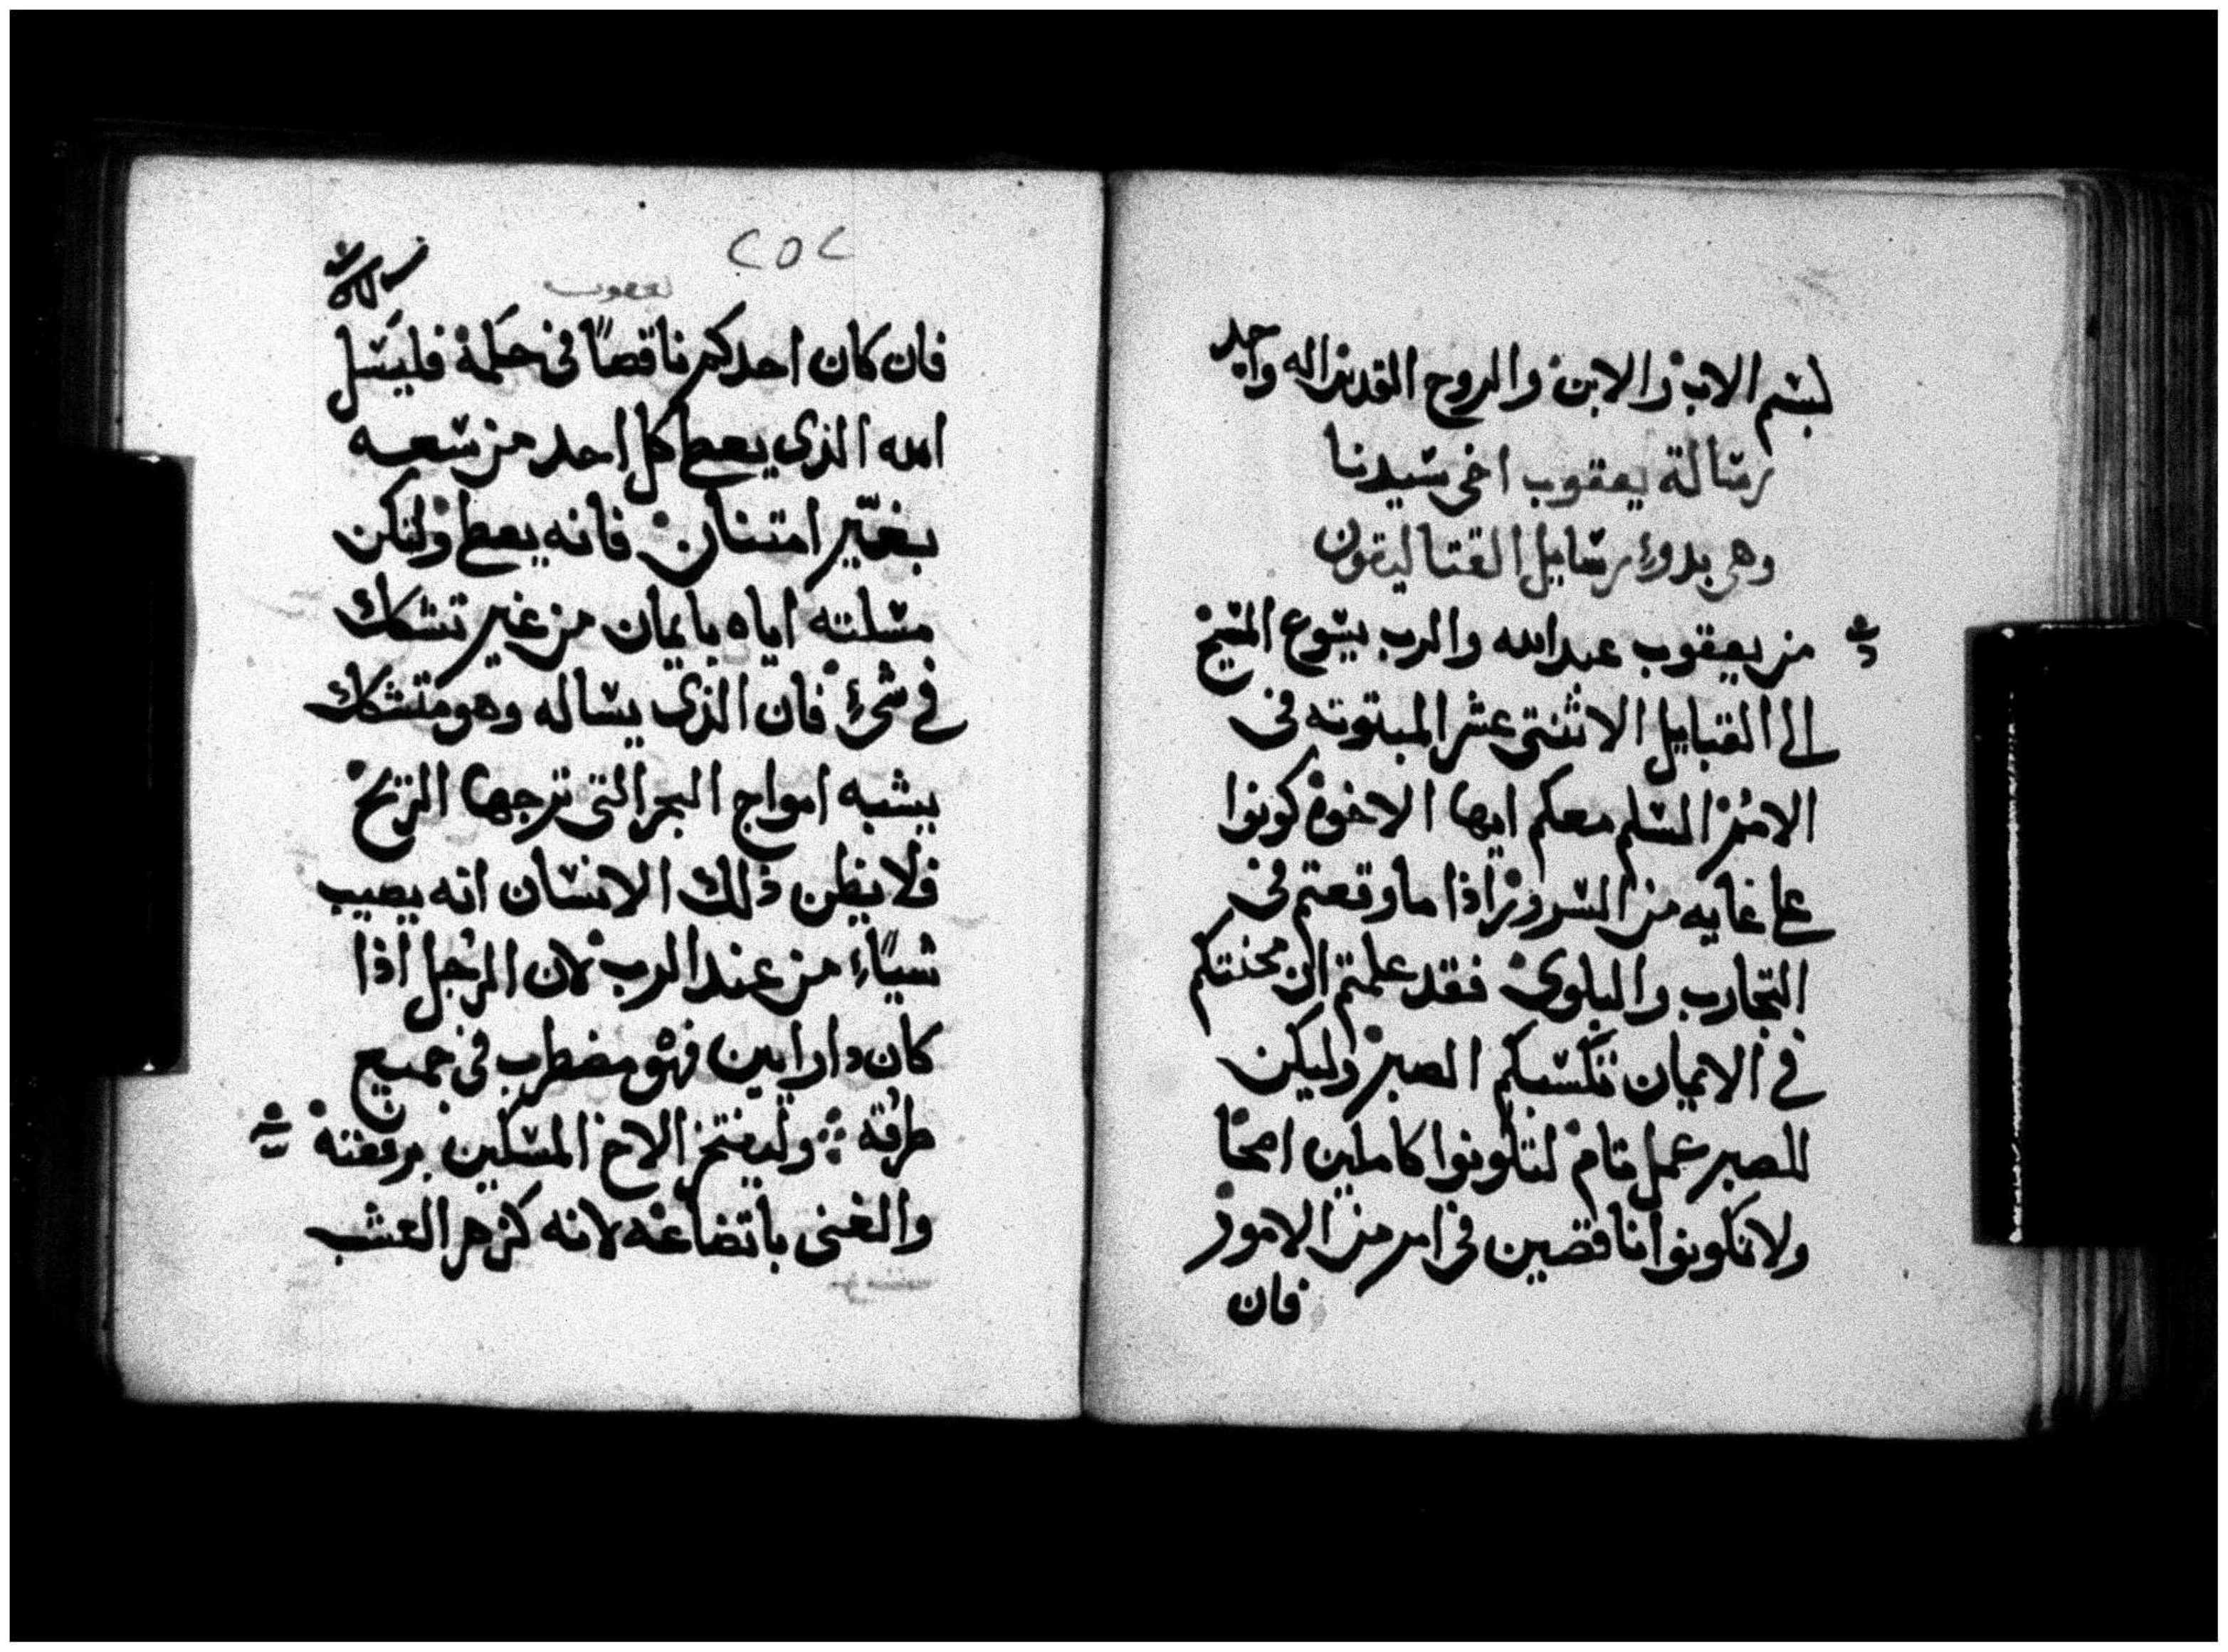 بسم الاب والابن والروح القدس اله واحد
رسالة يعقوب اخى سيدنا
وهى بدوء رسايل القتاليقون
من يعقوب عبد الله والرب يسوع المسيح
الى القبايل الاثنتى عشر المبتوته فى
الامم السلم معكم ايها الاخوة كونوا
على غايه من السرور اذا ما وقعتم فى
التجارب والبلوى فقد علمتم ان محنتكم
فى الايمان تكسبكم الصبر وليكن
للصبر عمل تام لتكونوا كاملين اصحا
ولا تكونوا ناقصين فى امر من الامور
فان
٢٥٢
يعقوب
فان كان احدكم ناقصًا فى حكمة فليسل
الله الذى يعطى كل احد من سعه
بغير امتنان فانه يعطى ولتكن
مسلته اياه بايمان من غير تشكك
فى شىء فان الذى يساله وهو متشكك
يشبه امواج البحر التى تزجها الريح
فلا يظن ذلك الانسان انه يصيب
شيًاء من عند الرب لان الرجل اذا
كان دا رايين فهو مضطرب فى جميع
طرقه وليفتخر الاخ المسكين برفعته
والغنى باتضاعه لانه كزهر العشب